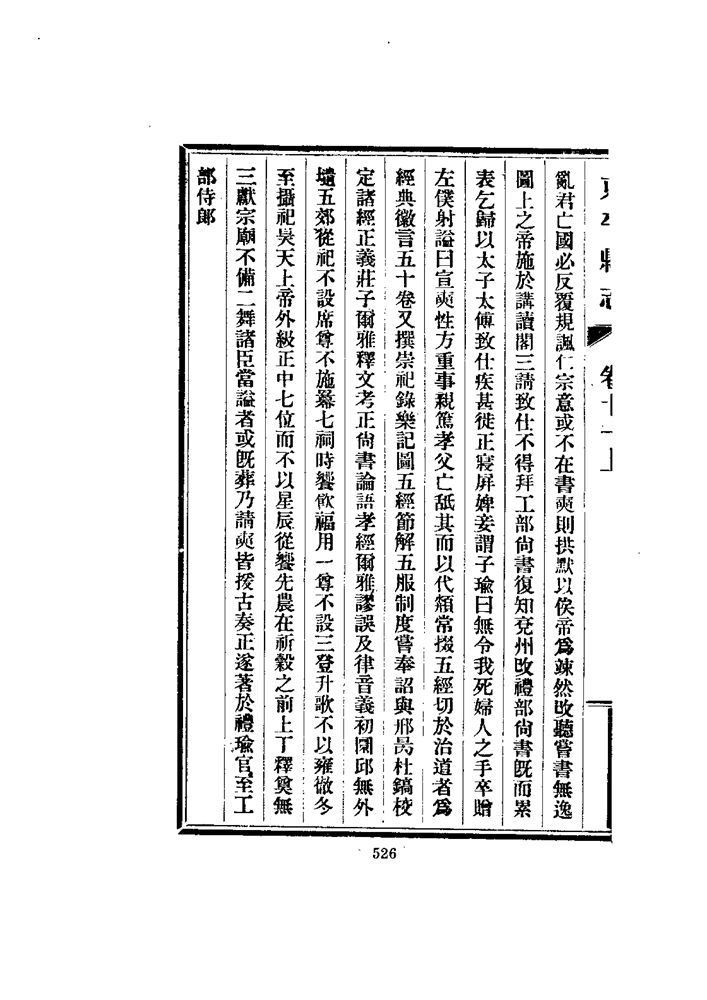 東平縣志 卷十一上
亂君亡國必反覆規諷仁宗意或不在書奭則拱默以俟帝爲竦然改聽嘗書無逸
圖上之帝施於講讀閣三請致仕不得拜工部尙書復知兗州改禮部尙書旣而累
表乞歸以太子太傅致仕疾甚徙正寢屏婢妾謂子瑜曰無令我死婦人之手卒贈
左僕射謚曰宣奭性方重事親篤孝父亡舐其面以代頮常掇五經切於治道者爲
經典徽言五十卷又撰崇祀錄樂記圖五經節解五服制度嘗奉詔與邢昺杜鎬校
定諸經正義莊子爾雅釋文考正尙書論語孝經爾雅謬誤及律音義初圜邱無外
壝五郊從祀不設席尊不施冪七祠時饗飮福用一尊不設三登升歌不以雍徹冬
至攝祀昊天上帝外級正中七位而不以星辰從饗先農在祈穀之前上丁釋奠無
三獻宗廟不備二舞諸臣當謚者或旣葬乃請奭皆援古奏正遂著於禮瑜官至工
部侍郎
526